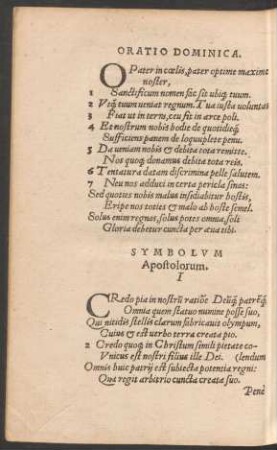 ORATIO DOMINICA.
O Pater in cœlis, pater optime maxime
noster,
1 Sanctificum nomen sic sit ubiq; tuum.
2 Utq; tuum ueniat regnum. Tua iusta uoluntas
3 Fiat ut in terris, ceu fit in arce poli.
4 Et nostrum nobis hodie de quotidieq;
Sufficiens panem de loquuplete penu.
5 Da ueniam nobis & debita tota remitte.
Nos quoq; donamus debita tota reis.
6 Tentatura datam discrimina pelle salutem.
7 Neu nos adduci in certa pericla sinas:
Sed quoties nobis malus insidiabitur hostis,
Eripe nos toties & malo ab hoste simel.
Solus enim regnes, solus potes omnia, soli
Gloria debetur cuncta per æua tibi.
SYMBOLVM
Apostolorum.
I
CRedo pia in nostrũ ratiõe Deũq; patrẽq;
Omnia quem statuo numine posse suo,
Qui nitidis stellis clarum fabricauit olympum,
Cuius & est uerbo terra creata pio.
2 Credo quoq; in Christum simili pietate co-
Vnicus est nostri filius ille Dei. (lendum
Omnis huic patrij est subiecta potentia regni:
Qua regit arbitrio cuncta creata suo.
Penè